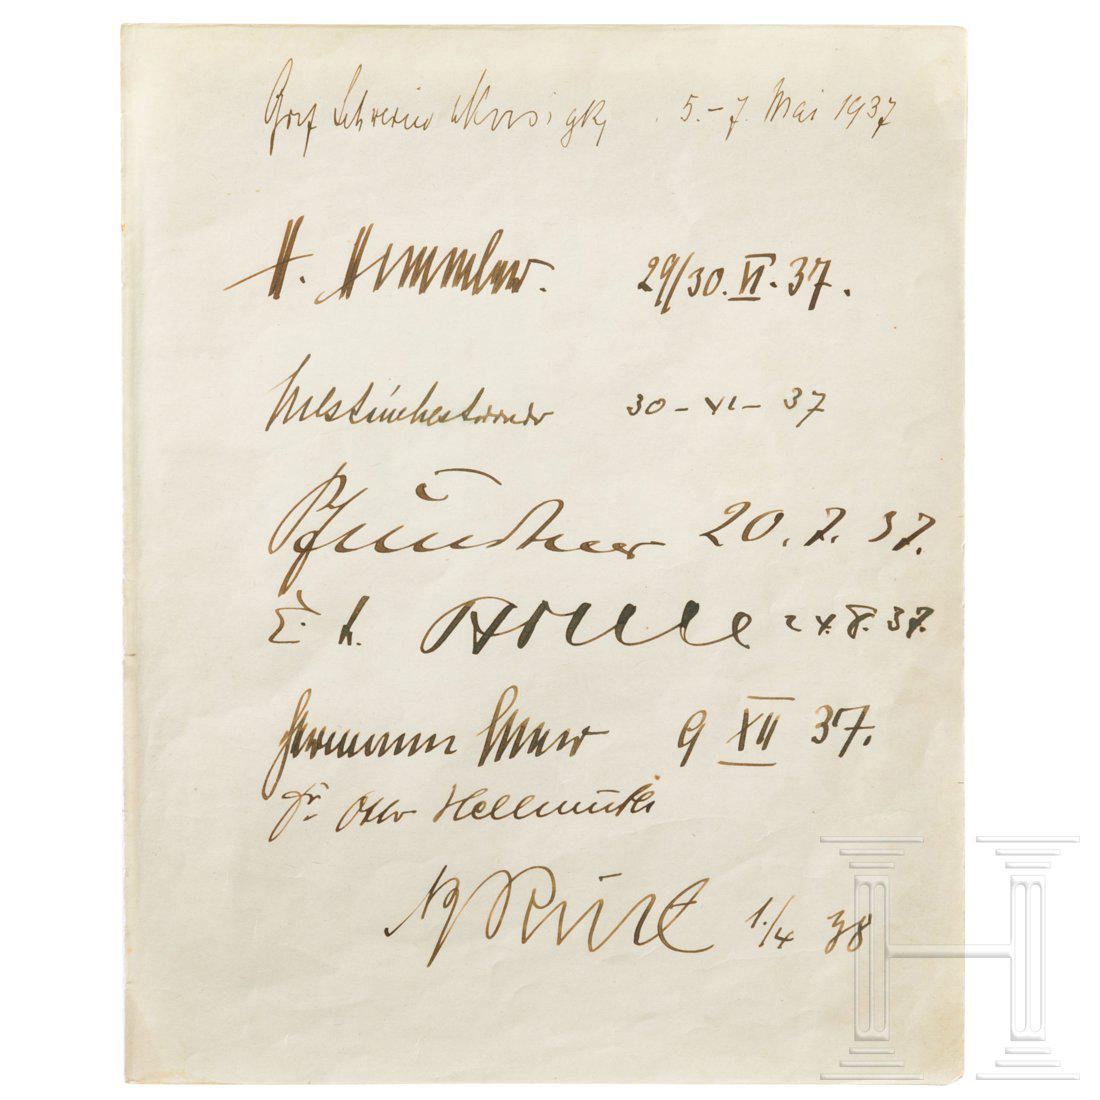 Graf Schwerin Krosigk 5.-7. Mai 1937
H. Himmler. 29/30. VI. 37.
30-VI-37
Pfundtner 20.7.37.
24.8.37.
Hermann Esser 9 XII 37.
Dr. Otto Hellmuth
1./4 38
H